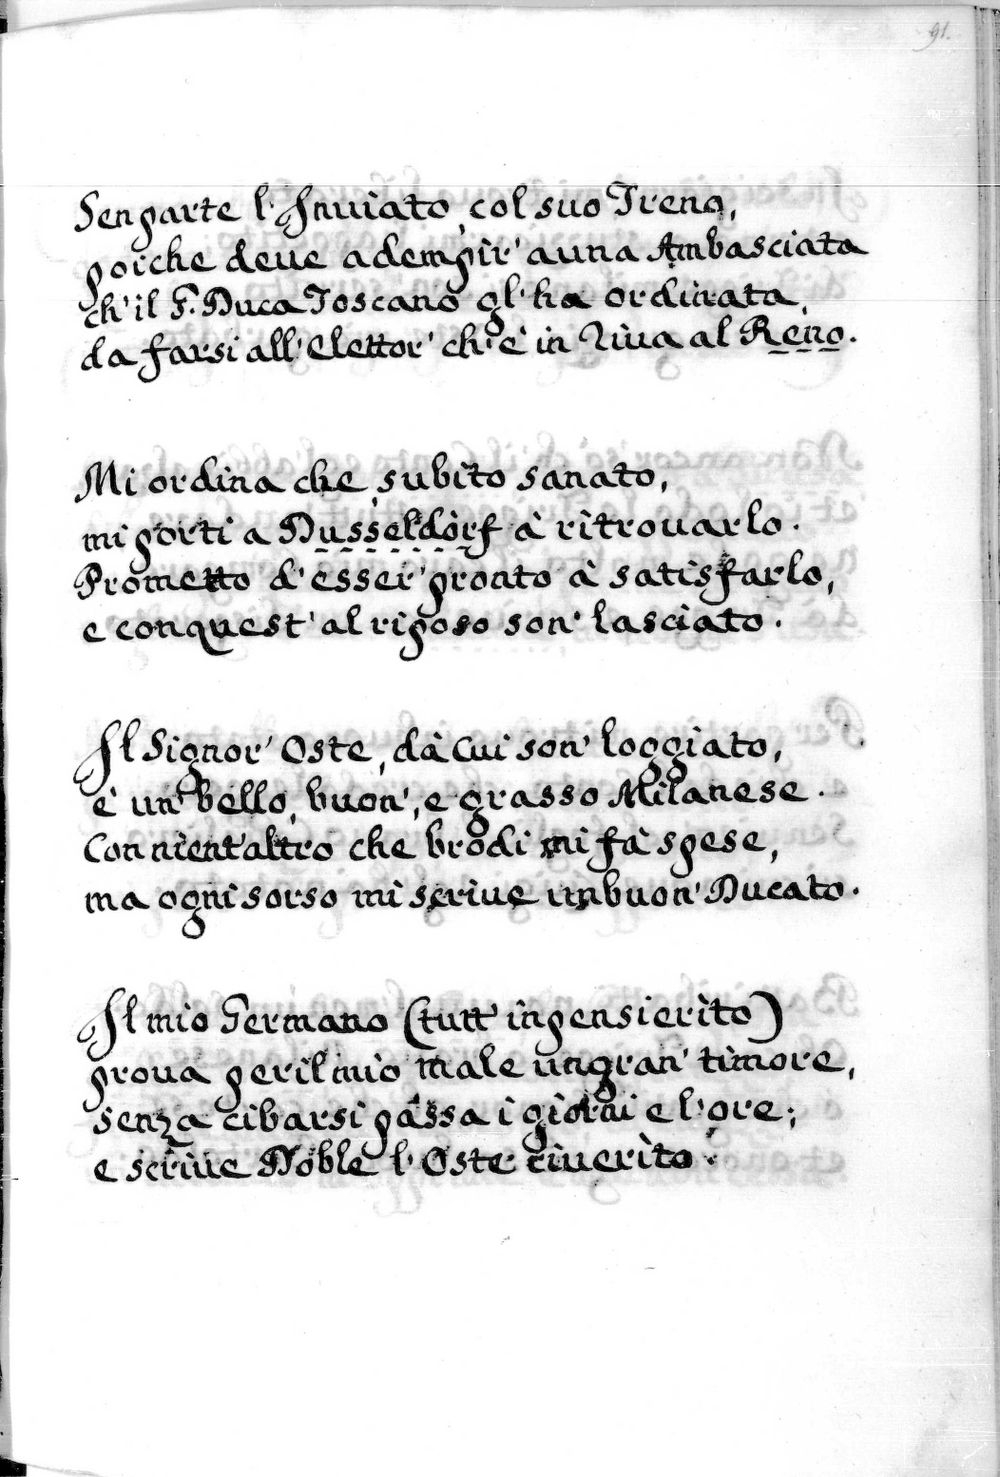 91.
Sen parte l'Inuiato col suo Treno,
poiche deue adempir' a una Ambasciata
ch'il G. Duca Toscano gl'ha ordinata,
da farsi all'Elettor' ch'è in Riua al Reno.
Mi ordina che subito sanato,
mi porti a Dusseldorf à ritrouarlo.
Prometto d'esser' pronto à satisfarlo,
e con quest' al riposo son' lasciato.
Il Signor' Oste, dà cui son' loggiato,
è un' bello, buon', e grasso Milanese.
Con nient'altro che brodi mi fà spese,
ma ogni sorso mi scriue un buon' Ducato.
Il mio Germano (tutt' inpensierito)
proua per il mio male un gran' timore,
senza cibarsi passa i giorni e l'ore;
e scriue Noble l'Oste riuerito.